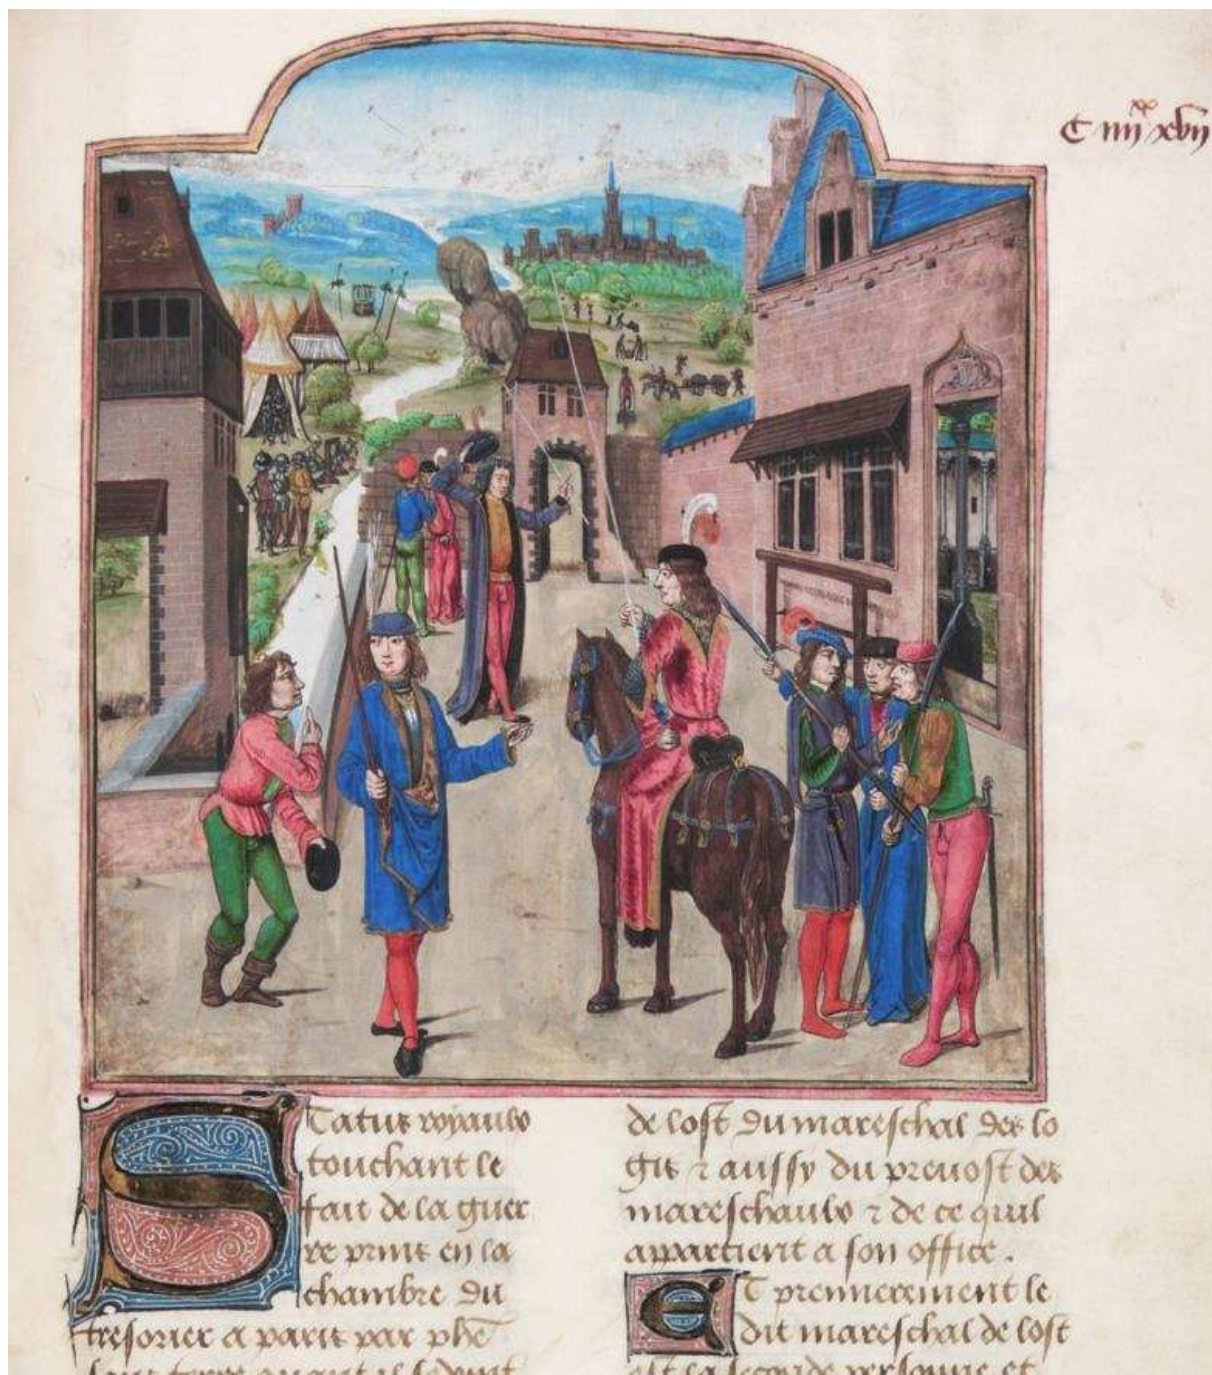 C iiii xx xvii
Status royaulx
touchant le
fait de la guer
re prins en la
chambre du
tresorier a paris par phe
de lost du mareschal des lo
gis ⁊ aussy du prevost des
mareschaulx ⁊ de ce quil
appartient a son office.
Et premierement le
dit mareschal de lost
est la seconde personne et